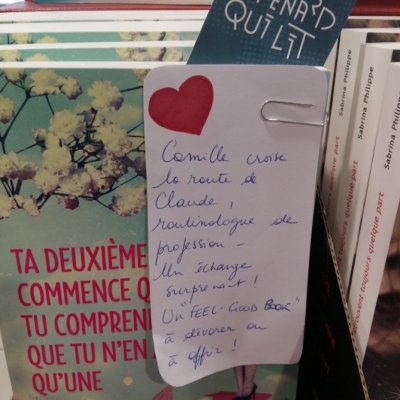 ENARD
QUI LIT
Camille croise
la route de
Claude,
routinologue de
profession -
Un échange
surprenant !
Un "FEEL-GOOD BOOK"
à dévorer ou
à offrir !
TA DEUXIÈME
COMMENCE Q
TU COMPREN
QUE TU N'EN
QU'UNE
Sabrina Philippe
Sabrina Philippe
Sabrina Philippe
toujours quelque part
toujours quelque part
retrouvent toujours quelque part